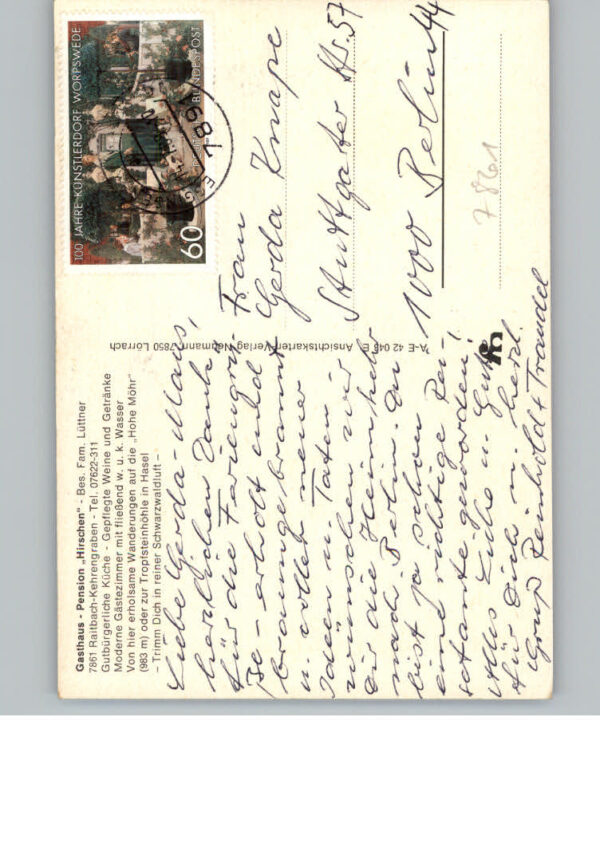 Gasthaus - Pension „Hirschen" - Bes. Fam. Lüttner
7861 Raitbach-Kehrengraben - Tel. 07622-311
Gutbürgerliche Küche - Gepflegte Weine und Getränke
Moderne Gästezimmer mit fließend w. u. k. Wasser
Von hier erholsame Wanderungen auf die „Hohe Möhr"
(983 m) oder zur Tropfsteinhöhle in Hasel
– Trimm Dich in reiner Schwarzwaldluft –
Liebe Gerda-Maus,
herzlichen Dank
für die Feriengrü-
ße - erholt und
braungebrannt
u. voller neuer
Ideen u. Taten
wünschen wir
Dir die Heimkehr
nach Berlin. Du
bist ja schon
eine richtige Ren-
tante geworden!
Alles Liebe u. Gute
für Dich u. herzl.
Grüße Reinhold + Traudel
A-E 42 048 E Ansichtskarten-Verlag Neumann 7850 Lörrach
100 JAHRE KÜNSTLERDORF WORPSWEDE
DEUTSCHE BUNDESPOST
60
Frau
Gerda Knape
Stuttgarter Str. 57
1000 Berlin 44
7861